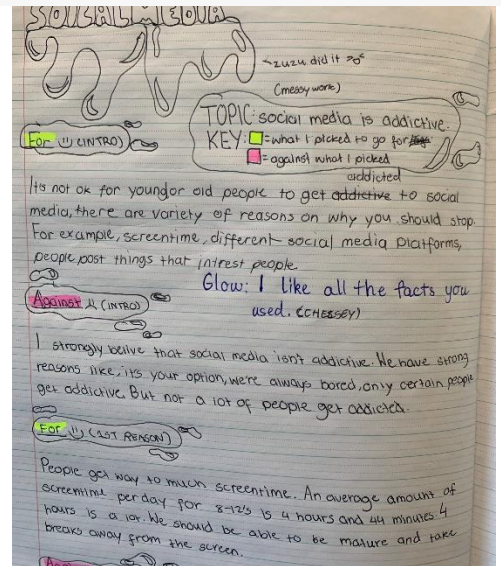 SOCIAL MEDIA
~zuzu did it
(messy work)
TOPIC: social media is addictive.
KEY: = what I picked to go for
= against what I picked
For (INTRO)
addicted
Its not ok for young or old people to get addictive to social
media, there are variety of reasons on why you should stop.
For example, screentime, different social media platforms,
people post things that intrest people.
Glow: I like all the facts you
used. (CHESSEY)
Against (INTRO)
I strongly belive that social media isn't addictive. We have strong
reasons like, its your option, we're always bored, only certain people
get addictive. But not a lot of people get addicted.
For (1ST REASON)
People get way to much screentime. An average amount of
screentime per day for 8-12's is 4 hours and 44 minutes. 4
hours is a lot. We should be able to be mature and take
breaks away from the screen.